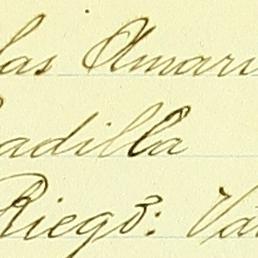 las Amari
adilla
Riego: Va